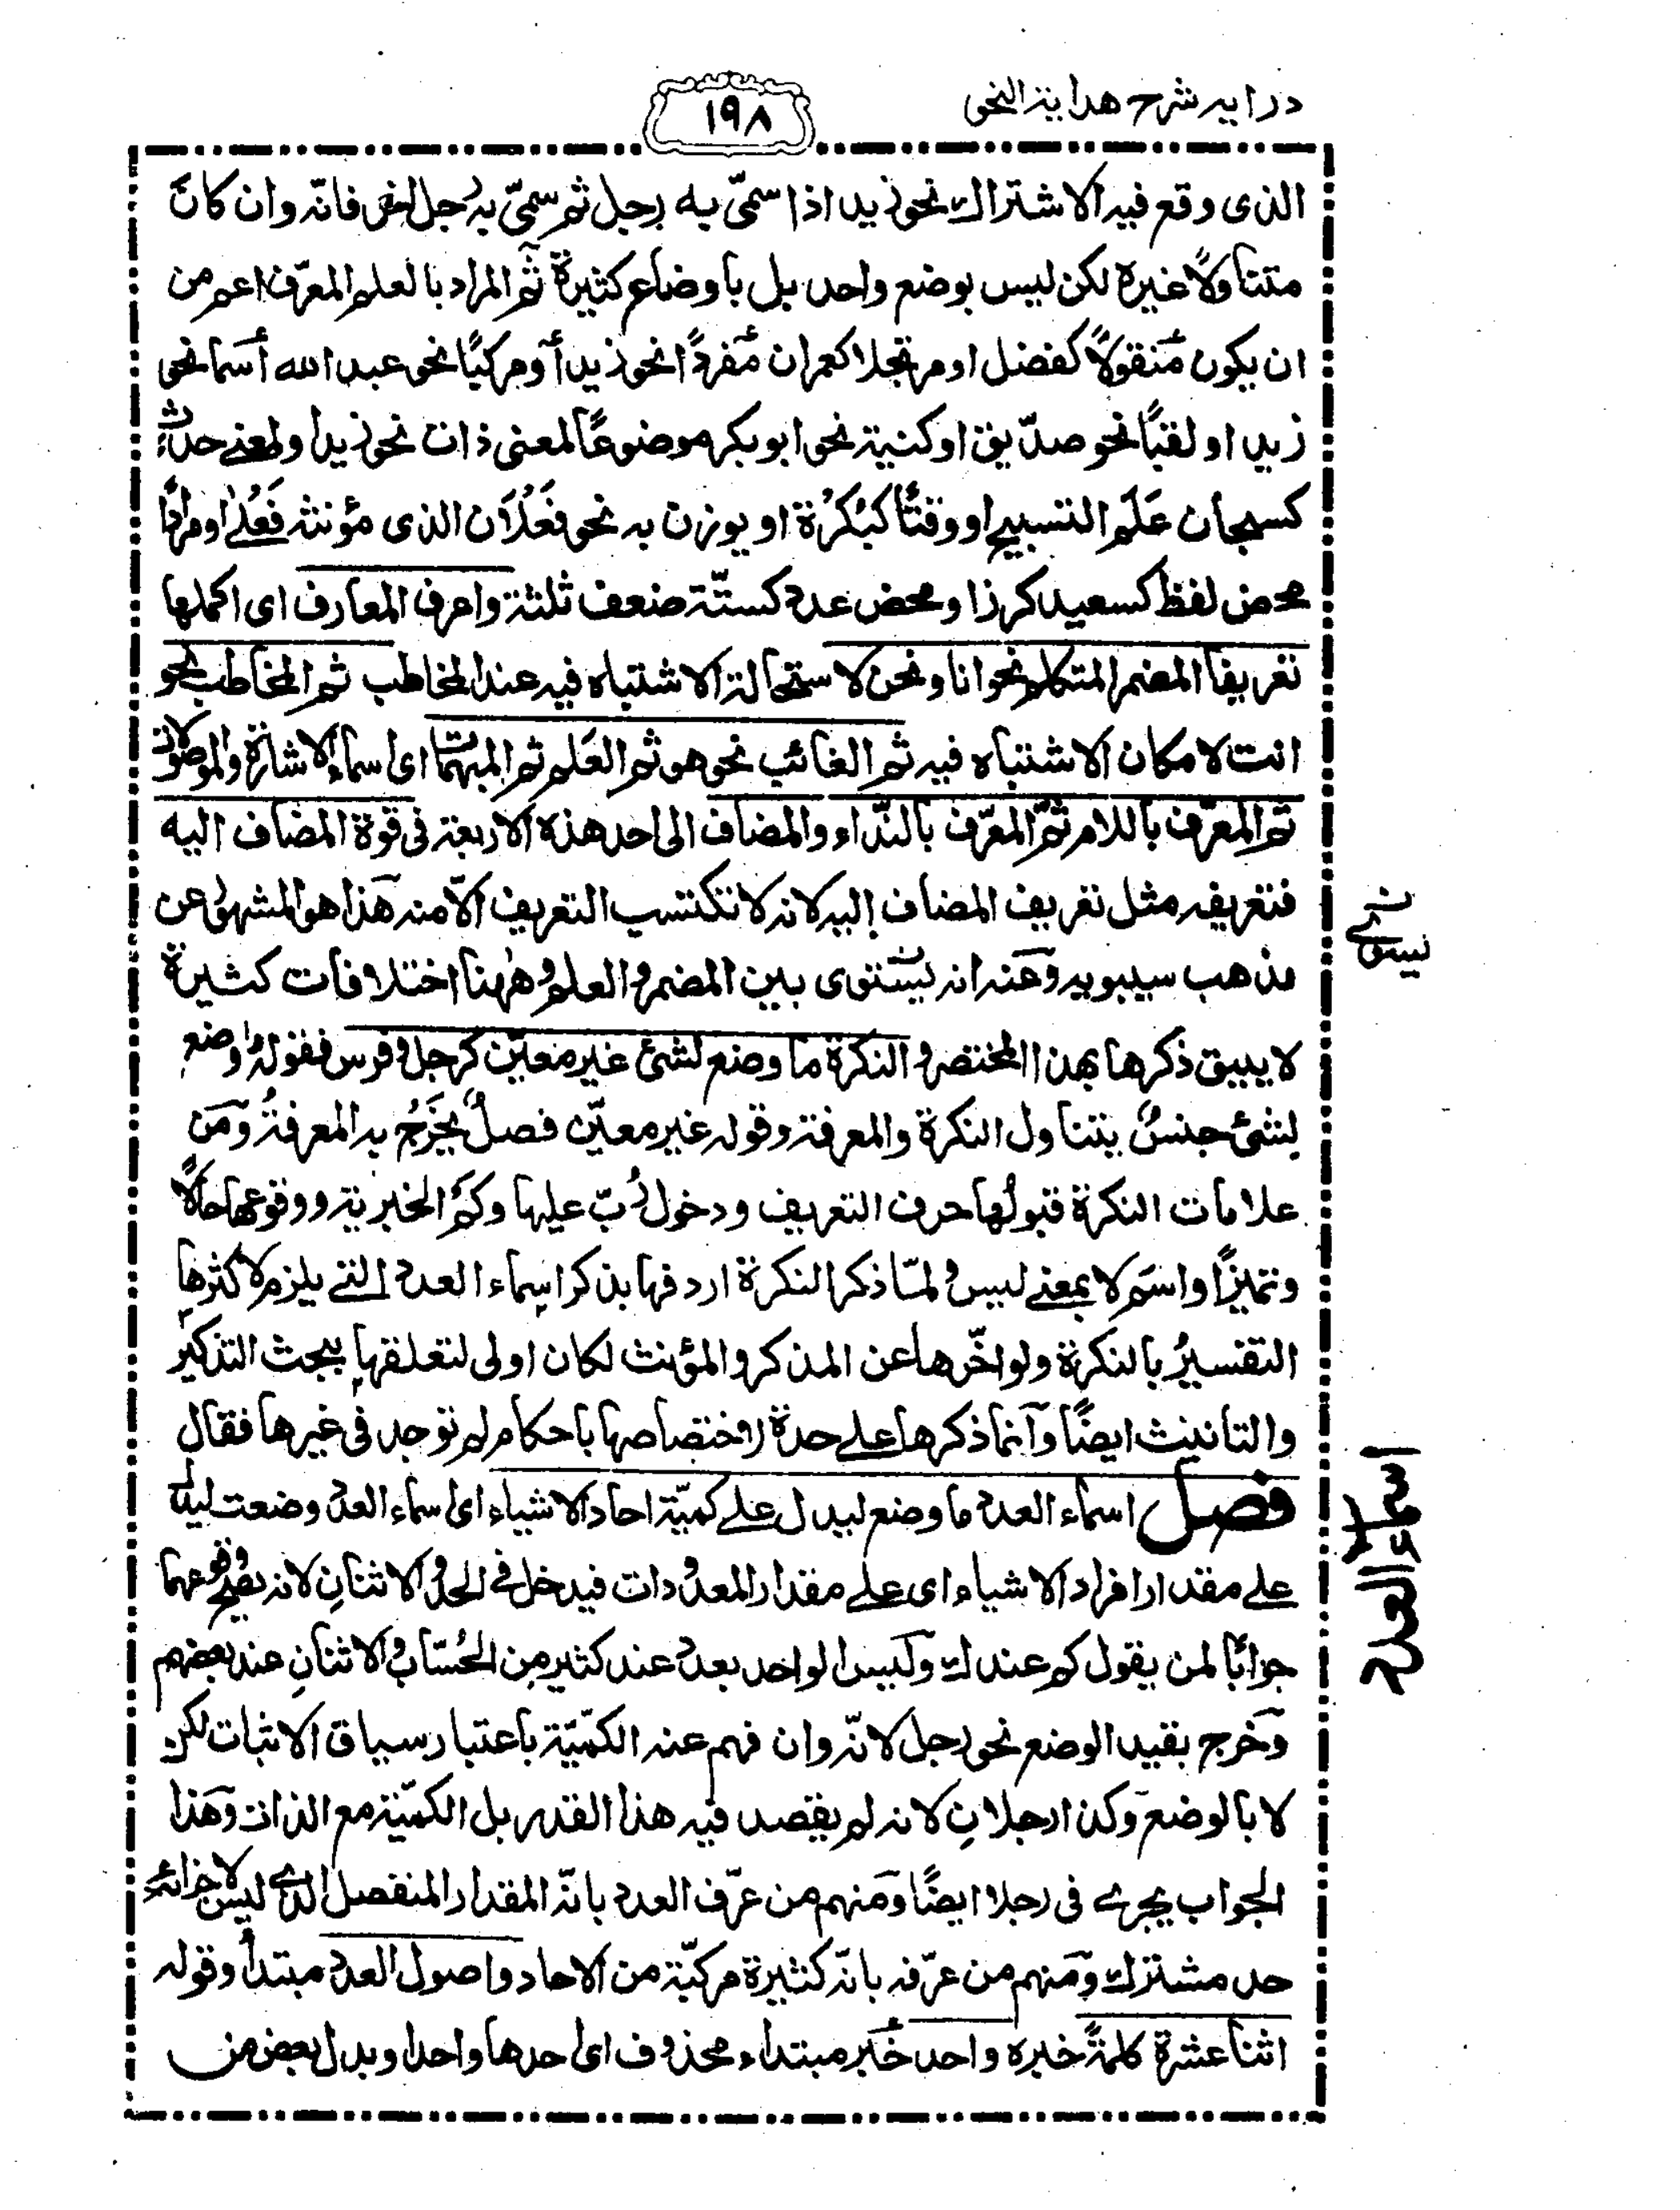 درایه شرح هدایة النحو
۱۹۸
الذی وقع فیه الاشتراك نحو زید اذا سمّی به رجل ثم سمّی به رجل اخر فانّه وان کان
متناولًا غیره لکن لیس بوضع واحد بل باوضاع کثیرة ثم المراد بالعلم المعرّف اعم من
ان یکون منقولًا کفضل او مرتجلا کعمران مفردًا نحو زید أو مرکبًا نحو عبد الله أسما نحو
زید او لقبًا نحو صدّیق او کنیة نحو ابوبکر موضوعًا لمعنی ذات نحو زید او لمعنے حدث
کسبحان عَلَم التسبیح او وقتًا کبُکْرَة او یوزن به نحو فَعْلَان الذی مؤنثه فَعْلٰے او مرادًا
محض لفظ کسعید کرز او محض عدد کستّة ضعف ثلثة واعرف المعارف ای اکملها
تعریفا المضمر المتکلم نحو انا ونحن لاستحالة الاشتباه فیه عند المخاطب ثم المخاطب نحو
انت لامکان الاشتباه فیه ثم الغائب نحو هو ثم العَلم ثم المبهمات ای اسماء الاشارة والموصولات
ثم المعرّف باللام ثمّ المعرّف بالنّداء والمضاف الی احد هذه الاربعة فی قوة المضاف الیه
فتعریفه مثل تعریف المضاف إلیه لانه لا تکتسب التعریف الّا منه هذا هو المشهور عن
مذهب سیبویه وعنه انه یستوی بین المضمر والعلم وههنا اختلافات کثیرة
لا یلیق ذکرها بهذا المختصر والنکرة ما وضع لشئ غیر معیّن کرجل وفرس فقوله ما وضع
لشئ جنسٌ یتناول النکرة والمعرفة وقوله غیر معیّن فصلٌ یَخْرُج به المعرفةُ ومن
علامات النکرة قبولُها حرف التعریف ودخولُ رُبّ علیها وکم الخبریة ووقوعها حالًا
وتمیزًا واسم لا بمعنے لیس ولمّا ذکر النکرة اردفها بذکر اسماء العدد التے یلزم لاکثرها
التفسیرُ بالنکرة ولو اخّرها عن المذکر والمؤنث لکان اولی لتعلقها ببحث التذکیر
والتانیث ایضًا وانما ذکرها علے حدة لاختصاصها باحکام لم توجد فی غیرها فقال
فصل اسماء العدد ما وضع لیدل علے کمیّة احاد الاشیاء ای اسماء العدد وضعت لیدل
علے مقدار افراد الاشیاء ای علے مقدار المعدودات فیدخل فے الحد الاثنانِ لانه یصح وقوعهما
جوابًا لمن یقول کم عندك ولیس الواحد بعدد عند کثیر من الحُسّاب والاثنانِ عند بعضهم
وخرج بقید الوضع نحو رجل لانّه وان فهم عنه الکمّیّة باعتبار سیاق الاثبات لکن
لا بالوضع وکذا رجلانِ لانه لم یقصد فیه هذا القدر بل الکمیّة مع الذات وهذا
الجواب یجرے فی رجلا ایضًا ومنهم من عرّف العدد بانّه المقدار المنفصل الذے لیس لاجزائه
حد مشترك ومنهم من عرّفه بانّه کثیرة مرکبّة من الاحاد واصول العدد مبتدأ وقوله
اثنا عشرة کلمةً خبره واحد خبر مبتداء محذوف ای احدها واحد او بدل بعض من
اسماء العدد